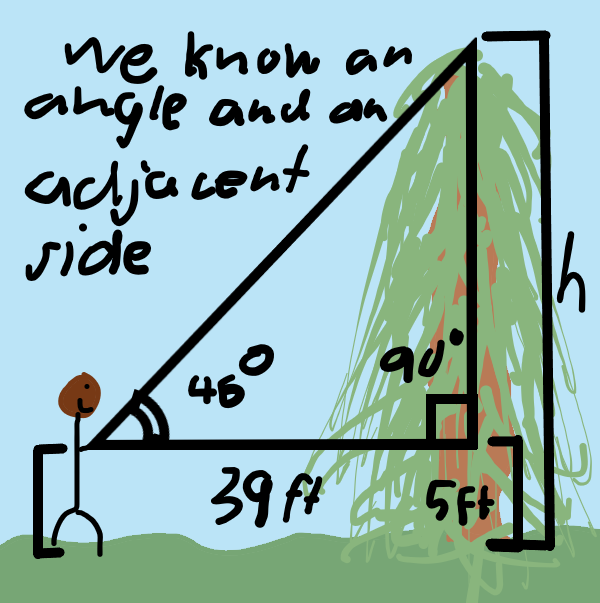 we know an
angle and an
adjacent
side
h
90°
46°
39ft
5ft